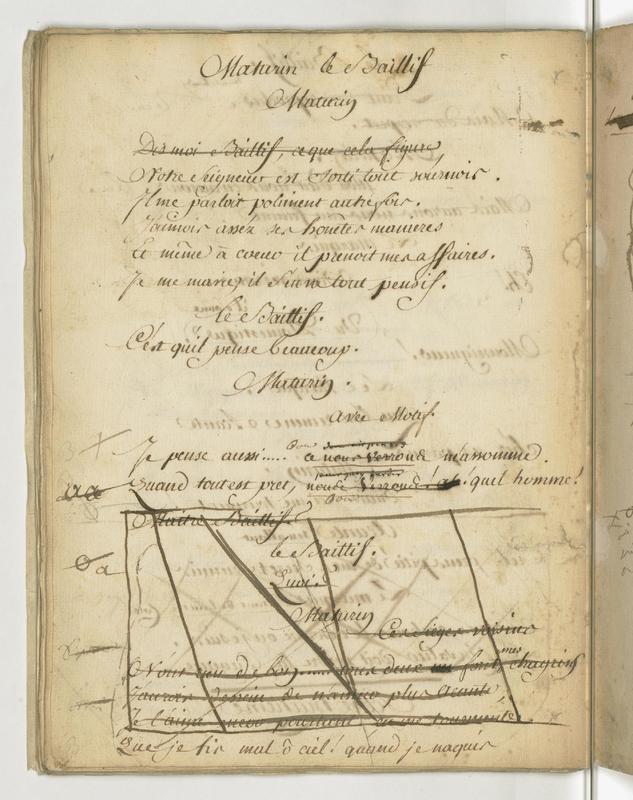 Maturin le Baillif
Maturin
Dis moi Baillif, ce que cela figure
Notre seigneur est sorti tout sournois.
Il me parloit poliment autrefois.
J'aimois assez ses honêtes manieres
Et même à coeur il prenoit mes affaires.
Je me marie, il s'en va tout pensif.
le Baillif.
C'est qu'il pense beaucoup.
Maturin.
avec Motif.
Je pense aussi..... ce nous verrons m'assomme.
Quand tout est pret, nous verrons! ah! quel homme!
Maitre Baillif.
le Baillif.
Quoi?
Maturin
Ces sieges voisins
tous deux font mes chagrins
J'aurois dessein de plus
Je l'aime
Que je sis mal ô ciel! quand je naquis